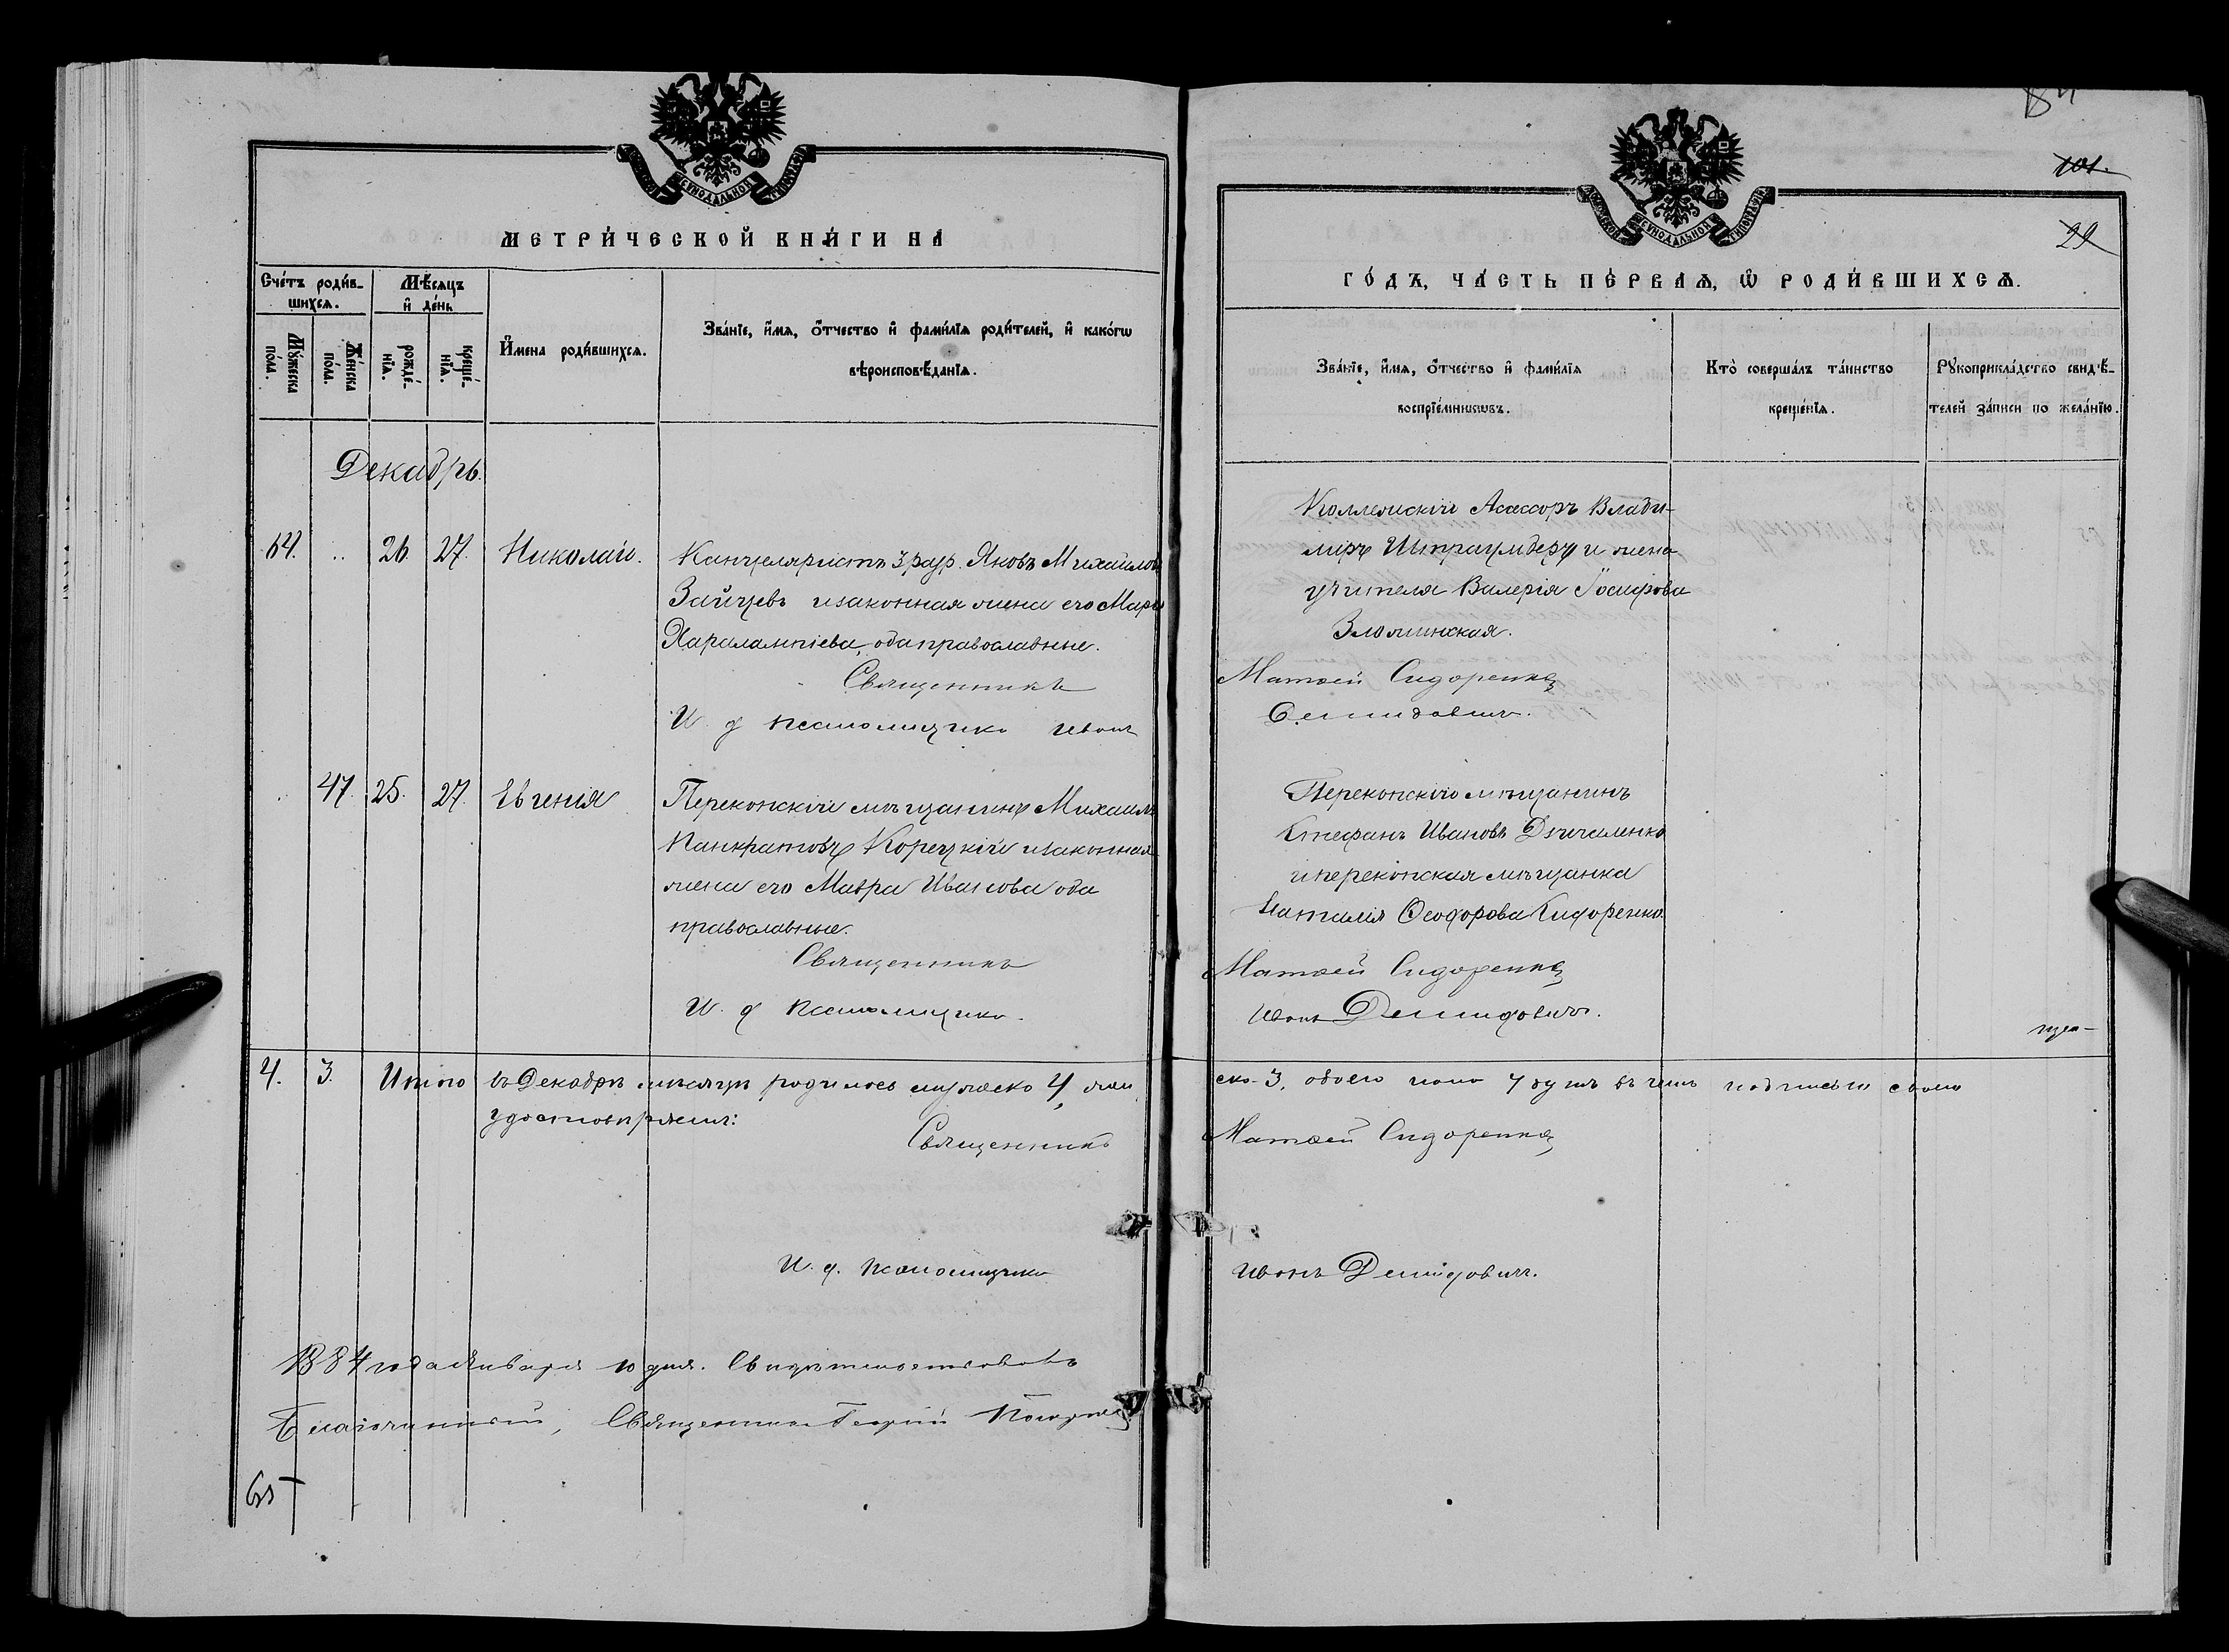 МЕТРИ́ЧЕСКОЙ КНИ́ГИ НА
Сче́тъ роди́в-
шихсѧ.
Мѣ́сѧцъ
и҆ де́нь
Мꙋ́жеска
по́ла.
Же́нска
по́ла.
рожде́-
нїѧ.
креще́-
нїѧ.
И҆мена роди́вшихсѧ.
Зва́нїе, и҆́мѧ, ѻ҆́тчество и҆ фами́лїѧ роди́телей, и҆ како́гѡ
вѣроисповѣ́данїѧ.
Декабрь.
64. .. 26. 27. Николай. Канцеляристъ 3 раз. Яковъ Михайловъ
Зайцевъ и законная жена его Марія
Харалампіева, оба православные.
Священникъ
И д псаломщика Иванъ
47. 25. 27. Евгенія Перекопскій мѣщанинъ Михаилъ
Панкратовъ Корецкій и законная
жена его Мавра Иванова оба
православные.
Священникъ
И. д псаломщика.
4. 3. Итого въ Декабрѣ мѣсяцѣ родилось мужеско 4, жен
удостовѣряемъ:
Священникъ
И. д. псаломщика
1884 года Января 10 дня. Свидѣтельствовалъ
Благочинный, Священникъ Георгій
СѴНОДАЛЬНОЙ
101.
29
ГО́ДЪ, ЧА́СТЬ ПЕ́РВАѦ, Ѡ҆ РОДИ́ВШИХСѦ.
Зва́нїе, и҆́мѧ, ѻ҆́тчество и҆ фами́лїѧ
воспрїе́мникѡвъ.
Кто̀ соверша́лъ та́инство
креще́нїѧ.
Рꙋкоприкла́дство свидѣ́-
телей за́писи по жела́нїю.
Коллежскій Асессоръ Влади-
миръ и жена
учителя Валерія Іосифова
Матѳей Сидоренко
Демидовичъ.
Перекопскій мѣщанинъ
Стефанъ Ивановъ
и перекопская мѣщанка
Наталія Ѳеодорова Сидоренко
Матѳей Сидоренко
Иванъ Демидовичъ.
ско 3, обоего пола 7 душъ въ чемъ подписью своею
Матѳей Сидоренко
Иванъ Демидовичъ.
СѴНОДАЛЬНОЙ